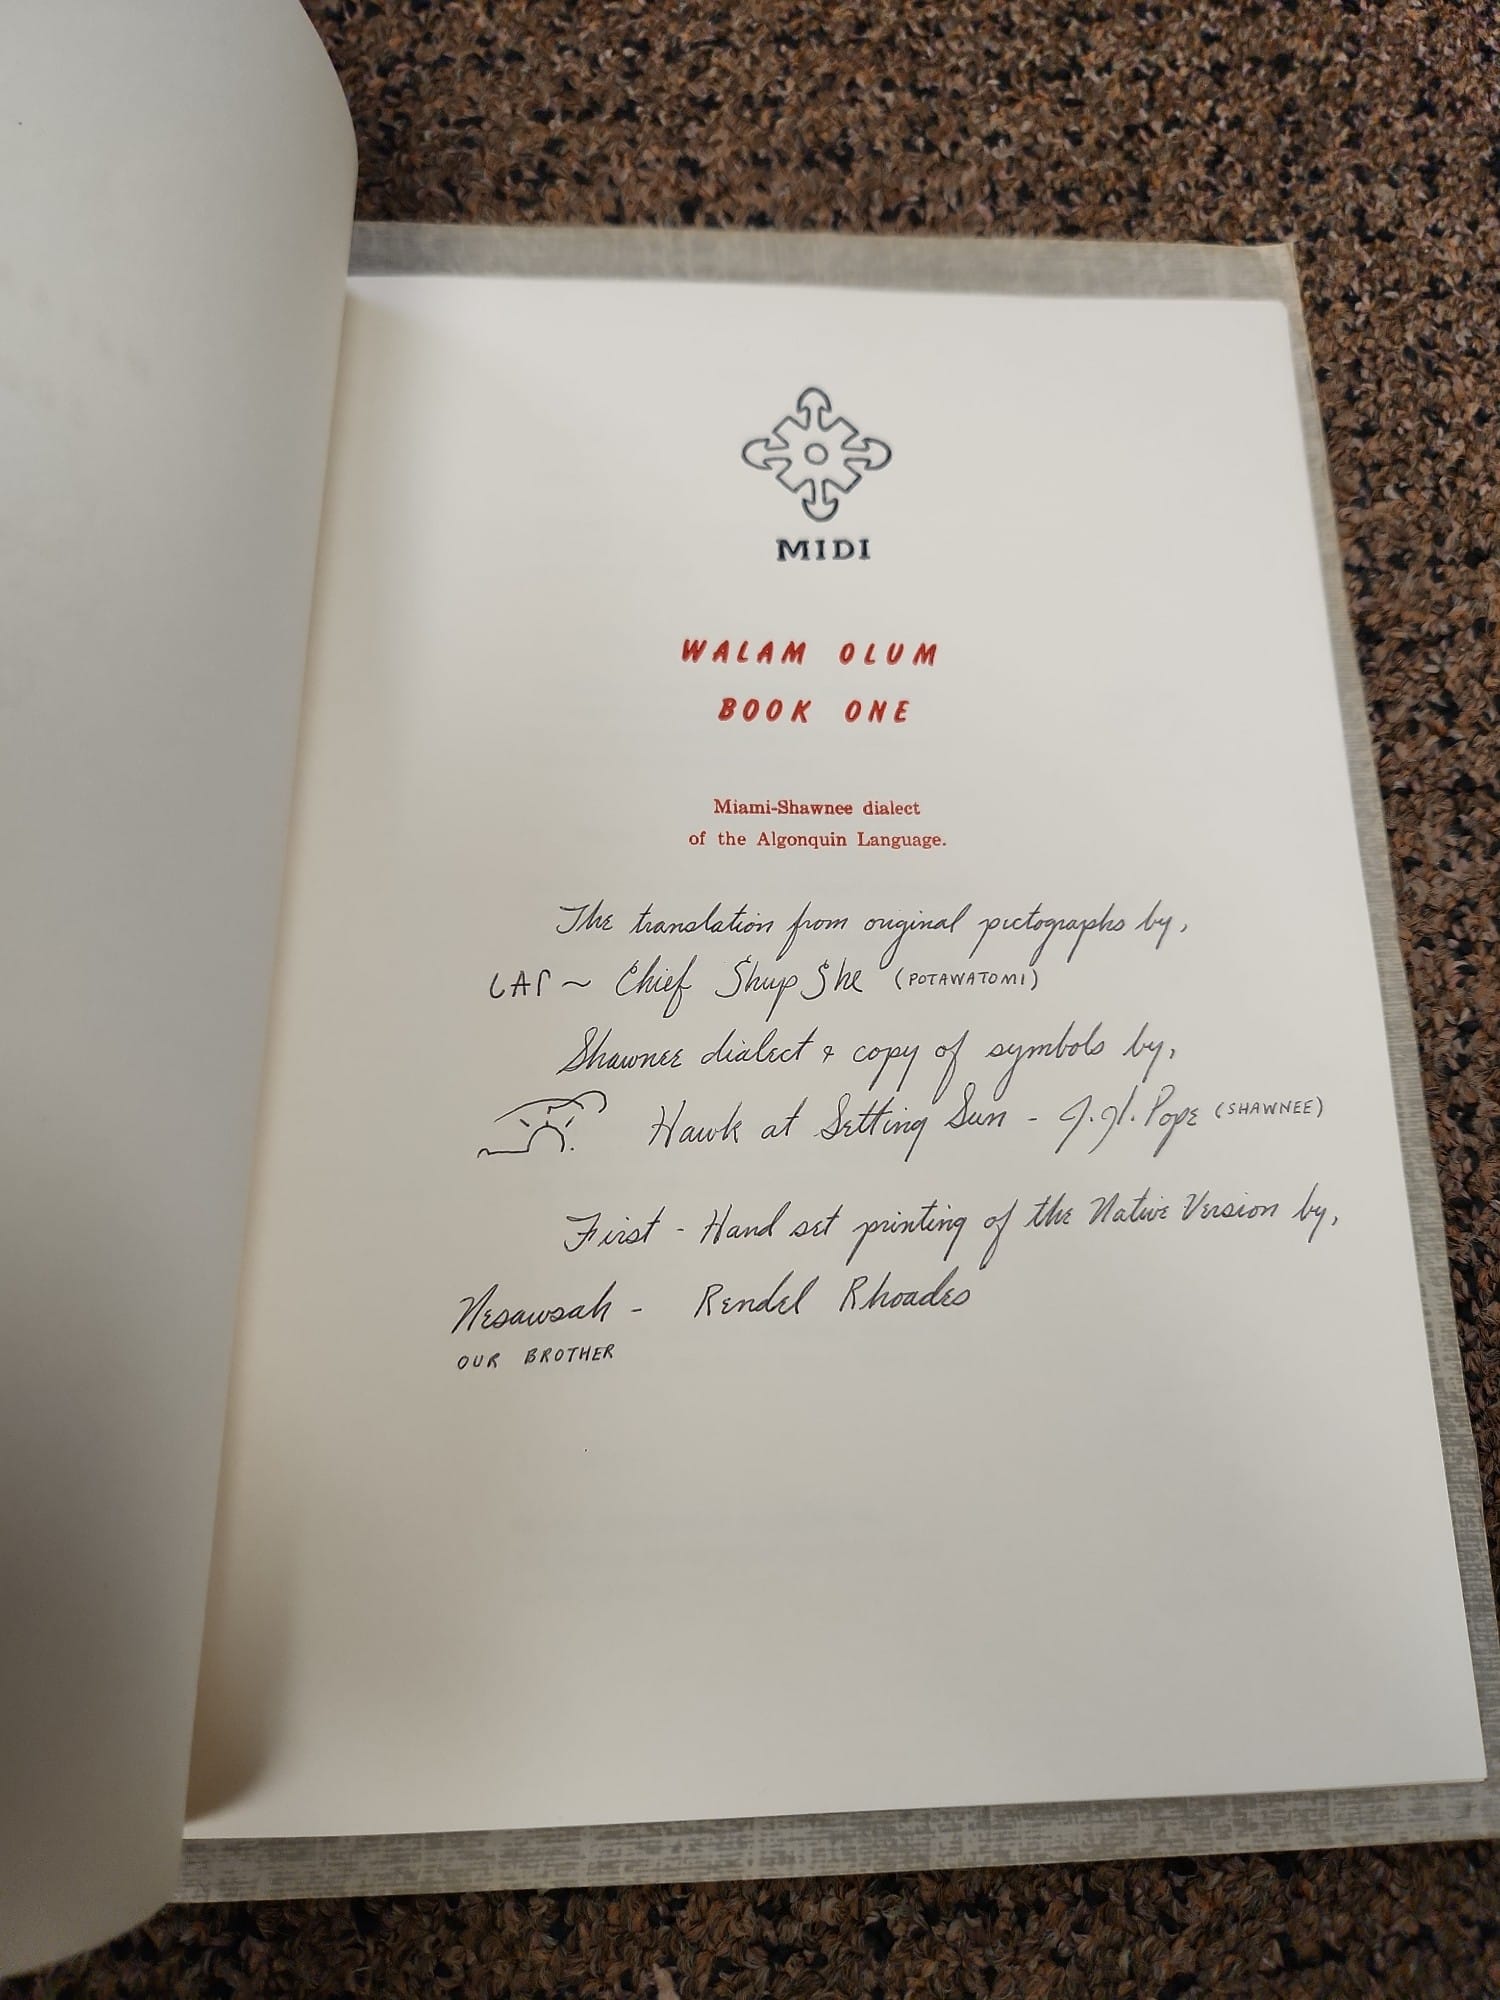 MIDI
WALAM OLUM
BOOK ONE
Miami-Shawnee dialect
of the Algonquin Language.
The translation from original pictographs by,
~ Chief Shup She (POTAWATOMI)
Shawnee dialect & copy of symbols by,
Hawk at Setting Sun - J.H. Pope (SHAWNEE)
First - Hand set printing of the Native Version by,
Nesawsah - Rendel Rhoades
OUR BROTHER